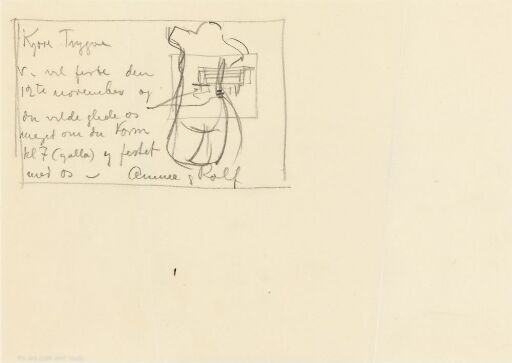 Kjære Trygve
vi vil feste den
12te november og
du vilde glede os
meget om du kom
kl 7 (galla) og festet
med os – Rolf